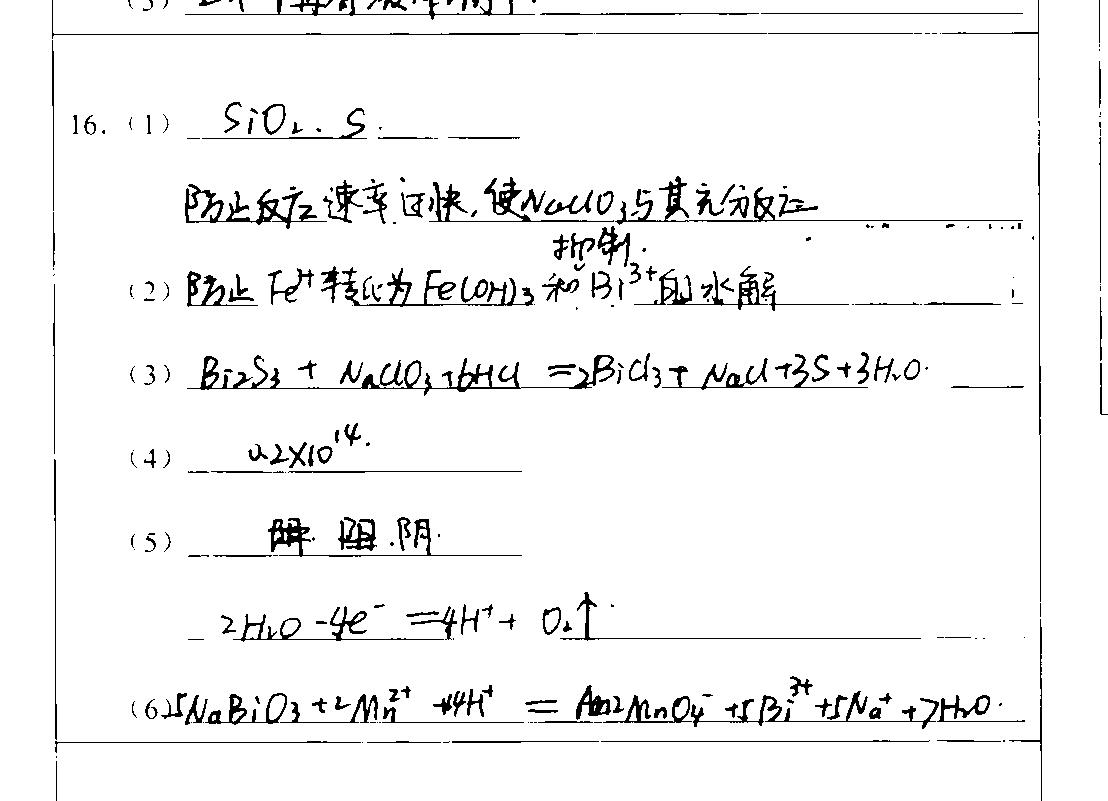 16. (1) SiO₂. S.
防止反应速率过快,使NaClO₃与其充分反应
抑制.
(2) 防止 Fe³⁺转化为Fe(OH)₃和Bi³⁺的水解
(3) Bi₂S₃ + NaClO₃+6HCl =2BiCl₃+ NaCl+3S+3H₂O.
(4) 0.2×10¹⁴.
(5) 阴.
2H₂O -4e⁻ =4H⁺+ O₂↑
(6) 5NaBiO₃+2Mn²⁺+14H⁺ = 2MnO₄⁻+5Bi³⁺+5Na⁺+7H₂O.